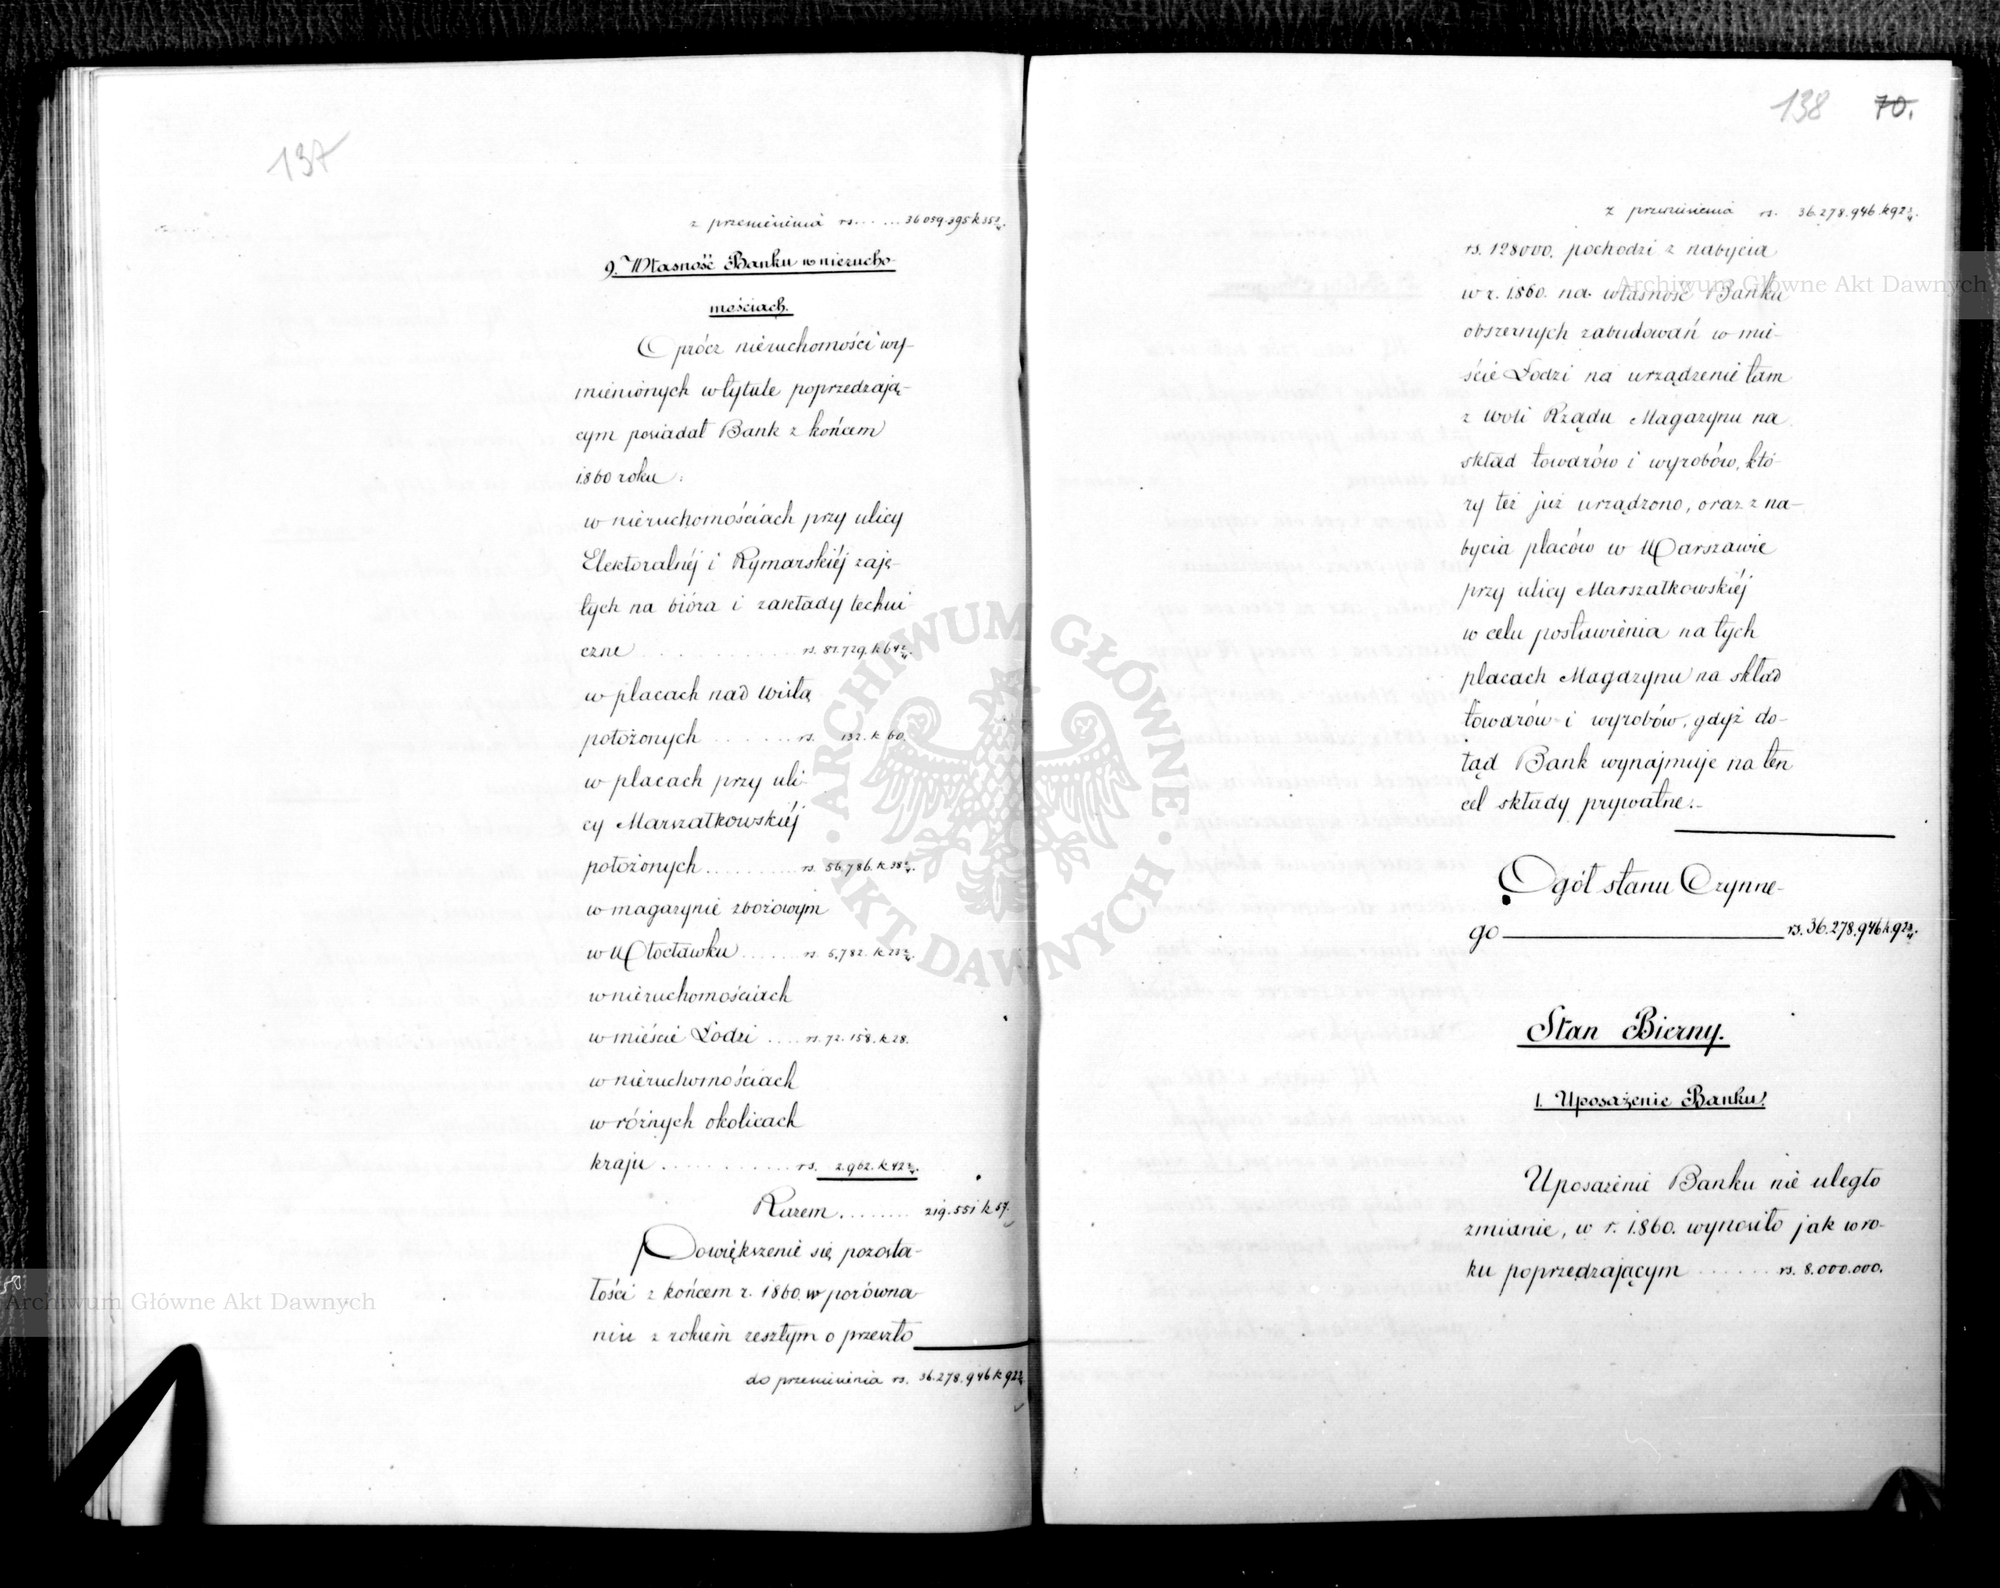 137
z przeniesienia rs. .... 36 059.395 k 35 2/4.
9. Własność Banku w nierucho-
mościach.
Oprócz nieruchomości wy-
mienionych w tytule poprzedzają-
cym posiadał Bank z końcem
1860 roku:
w nieruchomościach przy ulicy
Elektoralnéj i Rymarskiéj zaję-
tych na bióra i zakłady techni
czne .......... rs. 81.729. k 64 2/4.
w placach nad Wisłą
położonych ....... rs. 132. k 60.
w placach przy uli-
cy Marszałkowskiéj
położonych .......... rs. 56.786. k 38 2/4.
w magazynie zbożowym
w Włocławku ...... rs. 5.782. k 23 2/4.
w nieruchomościach
w mieście Łodzi .... rs. 72. 158. k 28.
w nieruchomościach
w różnych okolicach
kraju ............ rs. 2.962. k 42 2/4.
Razem ........ 219.551 k 57.
Powiększenie się pozosta-
łości z końcem r. 1860. w porówna-
niu z rokiem zeszłym o przeszło
do przeniesienia rs. 36.278.946 k 92 2/4.
138 70.
z przeniesienia rs. 36.278.946. k 92 2/4.
rs. 128000. pochodzi z nabycia
w r. 1860. na własność Banku
obszernych zabudowań w mie-
ście Łodzi na urządzenie tam
z woli Rządu Magazynu na
skład towarów i wyrobów, któ-
ry też już urządzono, oraz z na-
bycia placów w Warszawie
przy ulicy Marszałkowskiéj
w celu postawienia na tych
placach Magazynu na skład
towarów i wyrobów, gdyż do-
tąd Bank wynajmuje na ten
cel składy prywatne.
Ogół stanu Czynne-
go rs. 36.278.946 k 92 2/4.
Stan Bierny.
1. Uposażenie Banku.
Uposażenie Banku nie uległo
zmianie, w r. 1860. wynosiło jak w ro-
ku poprzedzającym ...... rs. 8.000.000.
Archiwum Główne Akt Dawnych
Archiwum Główne Akt Dawnych
ARCHIWUM GŁÓWNE
AKT DAWNYCH